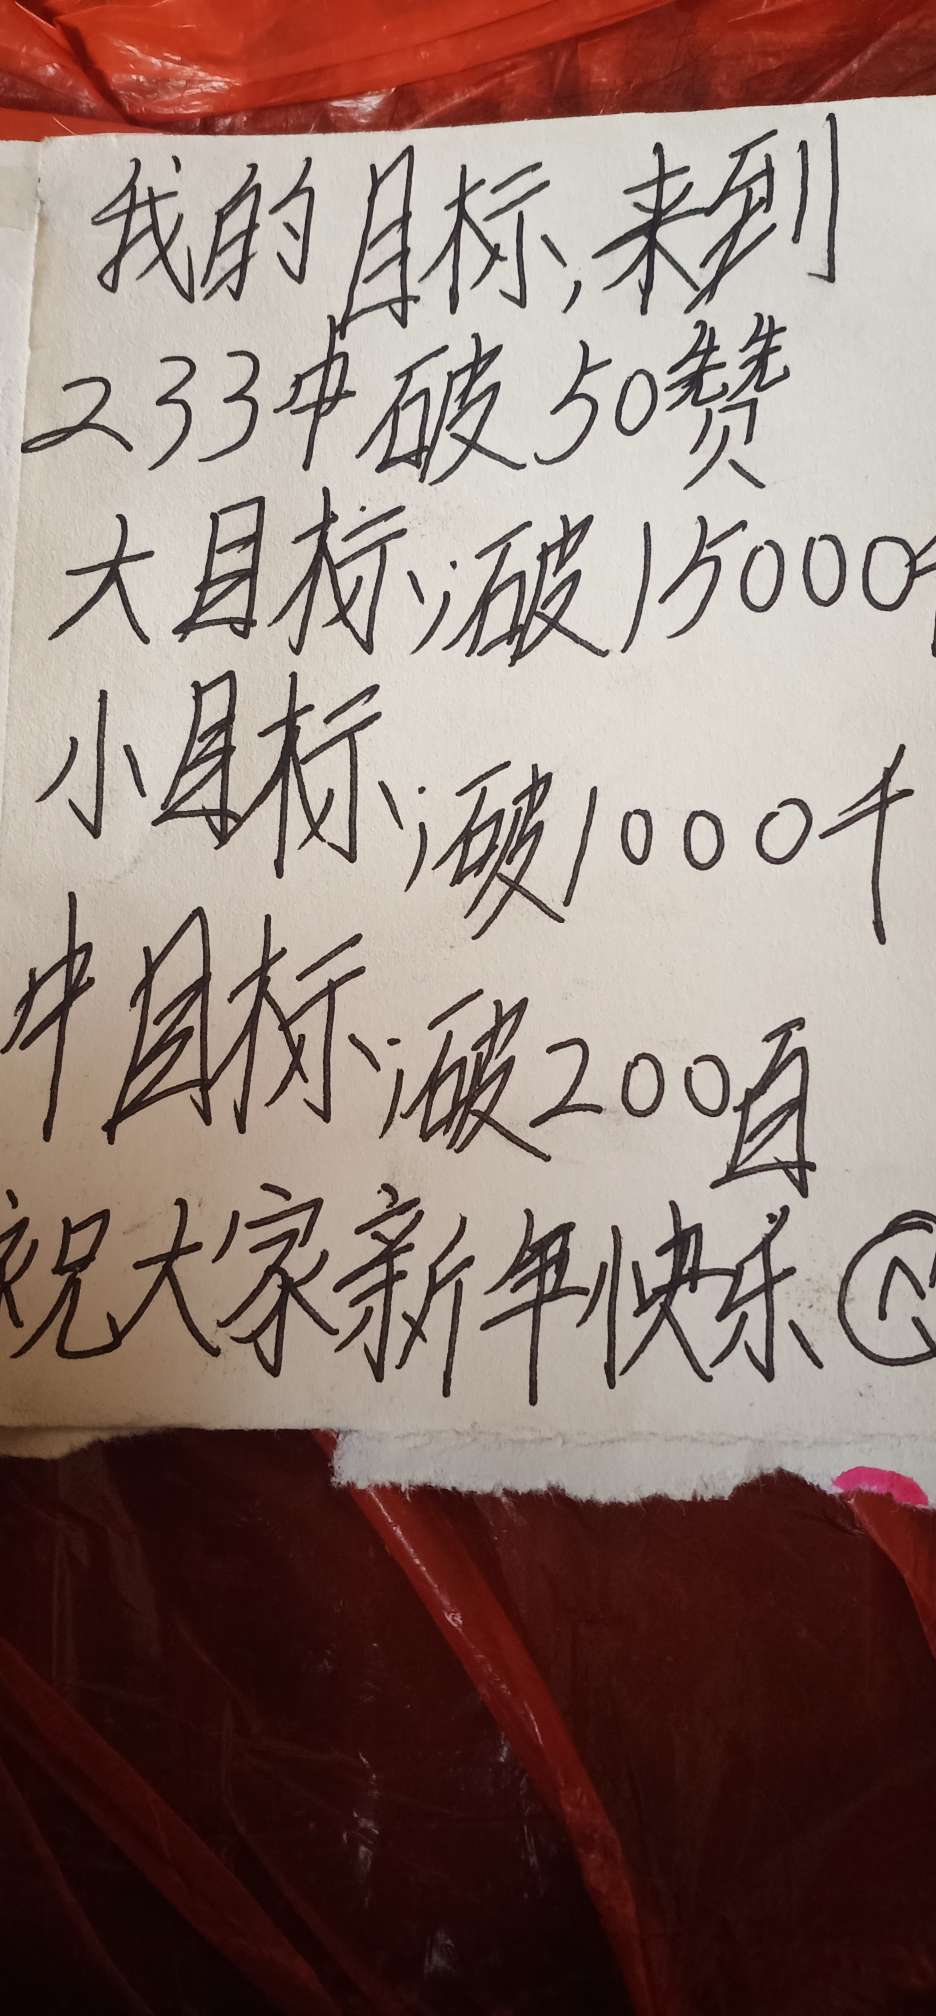 我的目标,来到
233中破50赞
大目标;破15000千
小目标;破1000千
中目标;破200百
祝大家新年快乐